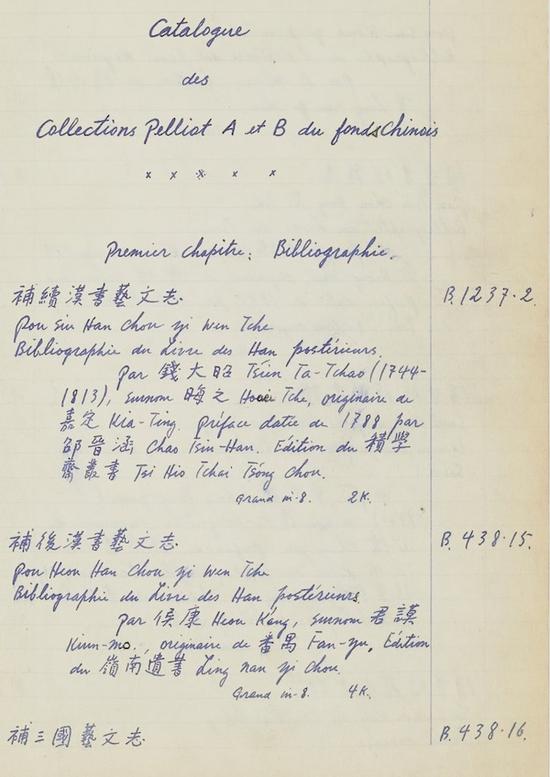 Catalogue
des
Collections Pelliot A et B du fonds Chinois
x x x x x
Premier chapitre: Bibliographie.
補續漢書藝文志. B.1237-2.
Pou Siu Han Chou yi wen Tche
Bibliographie du Livre des Han postérieurs.
par 錢大昭 Tsien Ta-Tchao (1744-
1813), surnom 晦之 Tche, originaire de
嘉定 Kia-Ting. Préface datée de 1788 par
邵晉涵 Chao Tsin-Han. Edition du 積學
齋叢書 Tsi Hio Tchai Tsong Chou.
Grand in-8. 2K.
補後漢書藝文志. B.438-15.
Pou Heou Han Chou yi wen Tche
Bibliographie du Livre des Han postérieurs
par 侯康 Heou K'ang, surnom 君謨
Kiun-mo., originaire de 番禺 Fan-yu. Edition
du 嶺南遺書 Ling nan yi Chou.
Grand in-8. 4K.
補三國藝文志. B.438-16.